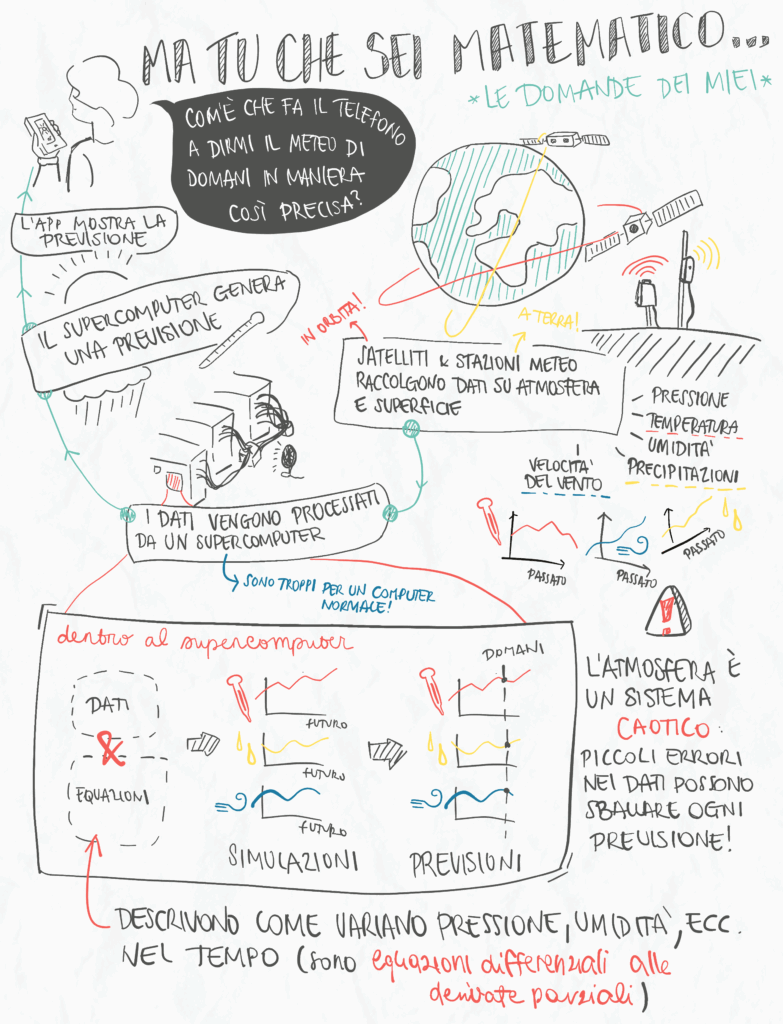 MA TU CHE SEI MATEMATICO...
*LE DOMANDE DEI MIEI*
COM'È CHE FA IL TELEFONO
A DIRMI IL METEO DI
DOMANI IN MANIERA
COSÌ PRECISA?
L'APP MOSTRA LA
PREVISIONE
IL SUPERCOMPUTER GENERA
UNA PREVISIONE
IN ORBITA!
A TERRA!
SATELLITI & STAZIONI METEO
RACCOLGONO DATI SU ATMOSFERA
E SUPERFICIE
- PRESSIONE
- TEMPERATURA
- UMIDITA'
PRECIPITAZIONI
VELOCITA'
DEL VENTO
PASSATO
PASSATO
PASSATO
I DATI VENGONO PROCESSATI
DA UN SUPERCOMPUTER
SONO TROPPI PER UN COMPUTER
NORMALE!
dentro al supercomputer
DATI
&
EQUAZIONI
FUTURO
FUTURO
FUTURO
SIMULAZIONI
DOMANI
PREVISIONI
!
L'ATMOSFERA È
UN SISTEMA
CAOTICO:
PICCOLI ERRORI
NEI DATI POSSONO
SBALLARE OGNI
PREVISIONE!
DESCRIVONO COME VARIANO PRESSIONE, UMIDITA', ECC.
NEL TEMPO (sono equazioni differenziali alle
derivate parziali)